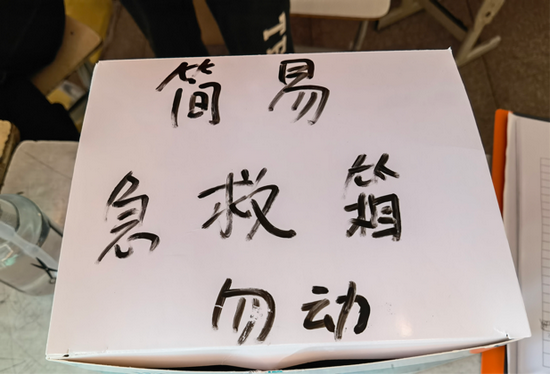 简易
急救箱
勿动